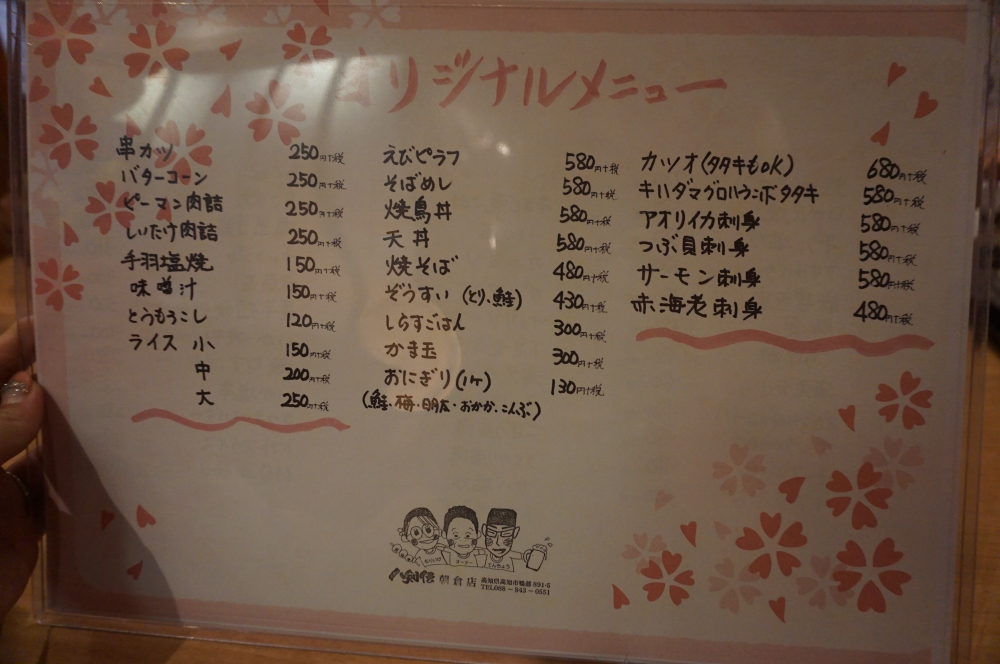 オリジナルメニュー
串カツ 250円+税
バターコーン 250円+税
ピーマン肉詰 250円+税
しいたけ肉詰 250円+税
手羽塩焼 150円+税
味噌汁 150円+税
とうもろこし 120円+税
ライス 小 150円+税
中 200円+税
大 250円+税
えびピラフ 580円+税
そばめし 580円+税
焼鳥丼 580円+税
天丼 580円+税
焼そば 480円+税
ぞうすい (とり、鮭) 430円+税
しらすごはん 300円+税
かま玉 300円+税
おにぎり(1ケ) 130円+税
(鮭・梅・明太・おかか・こんぶ)
カツオ(タタキもOK) 680円+税
キハダマグロハランボタタキ 580円+税
アオリイカ刺身 580円+税
つぶ貝刺身 580円+税
サーモン刺身 580円+税
赤海老刺身 480円+税
八剣伝 朝倉店
高知県高知市鴨部891-5
TEL088-843-0551